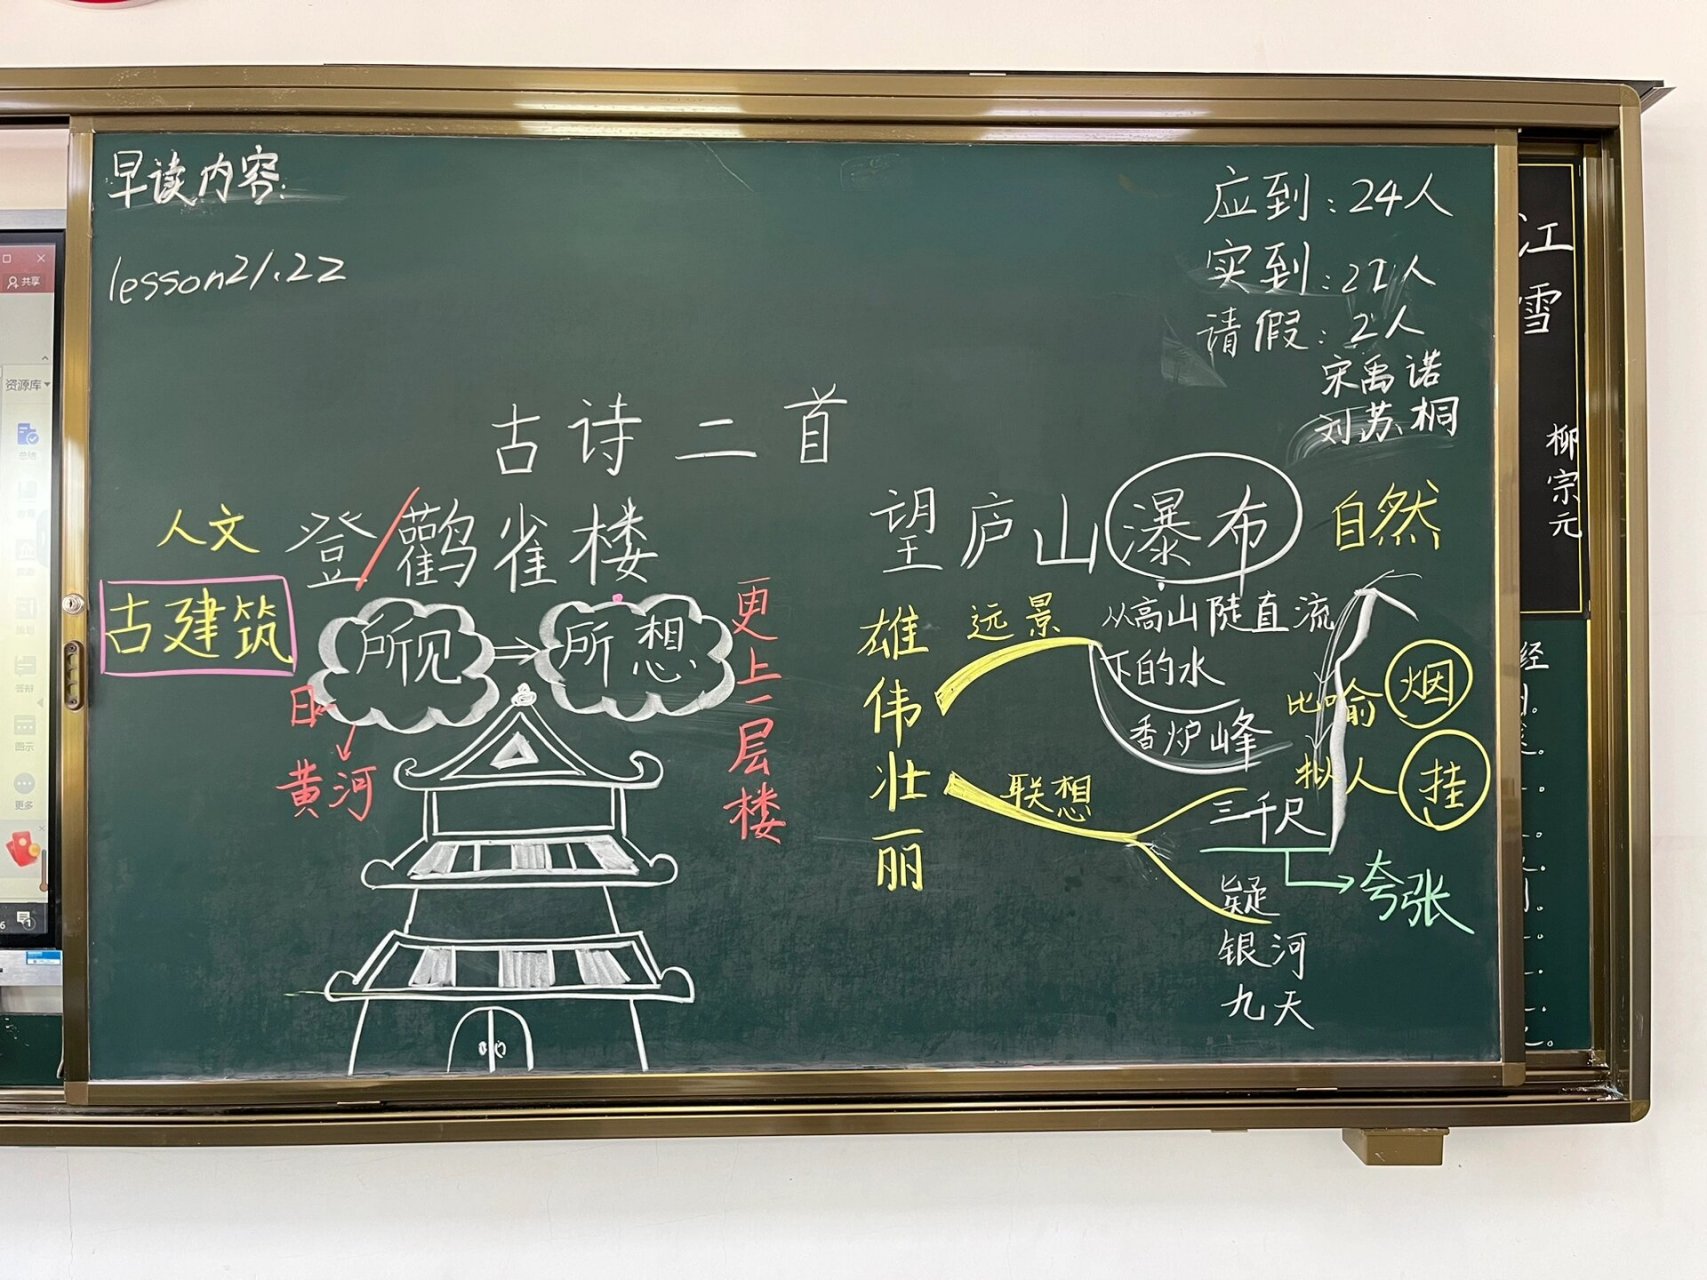 早读内容:
lesson21.22
应到:24人
实到:22人
请假:2人
宋禹诺
刘苏桐
古诗二首
人文
登/鹳雀楼
古建筑
所见
所想
日
黄河
更上一层楼
望庐山瀑布
自然
雄伟壮丽
远景
从高山陡直流
下的水
香炉峰
联想
三千尺
疑
银河
九天
比喻
烟
拟人
挂
夸张
江雪
柳宗元
经
共享
资源库
更多